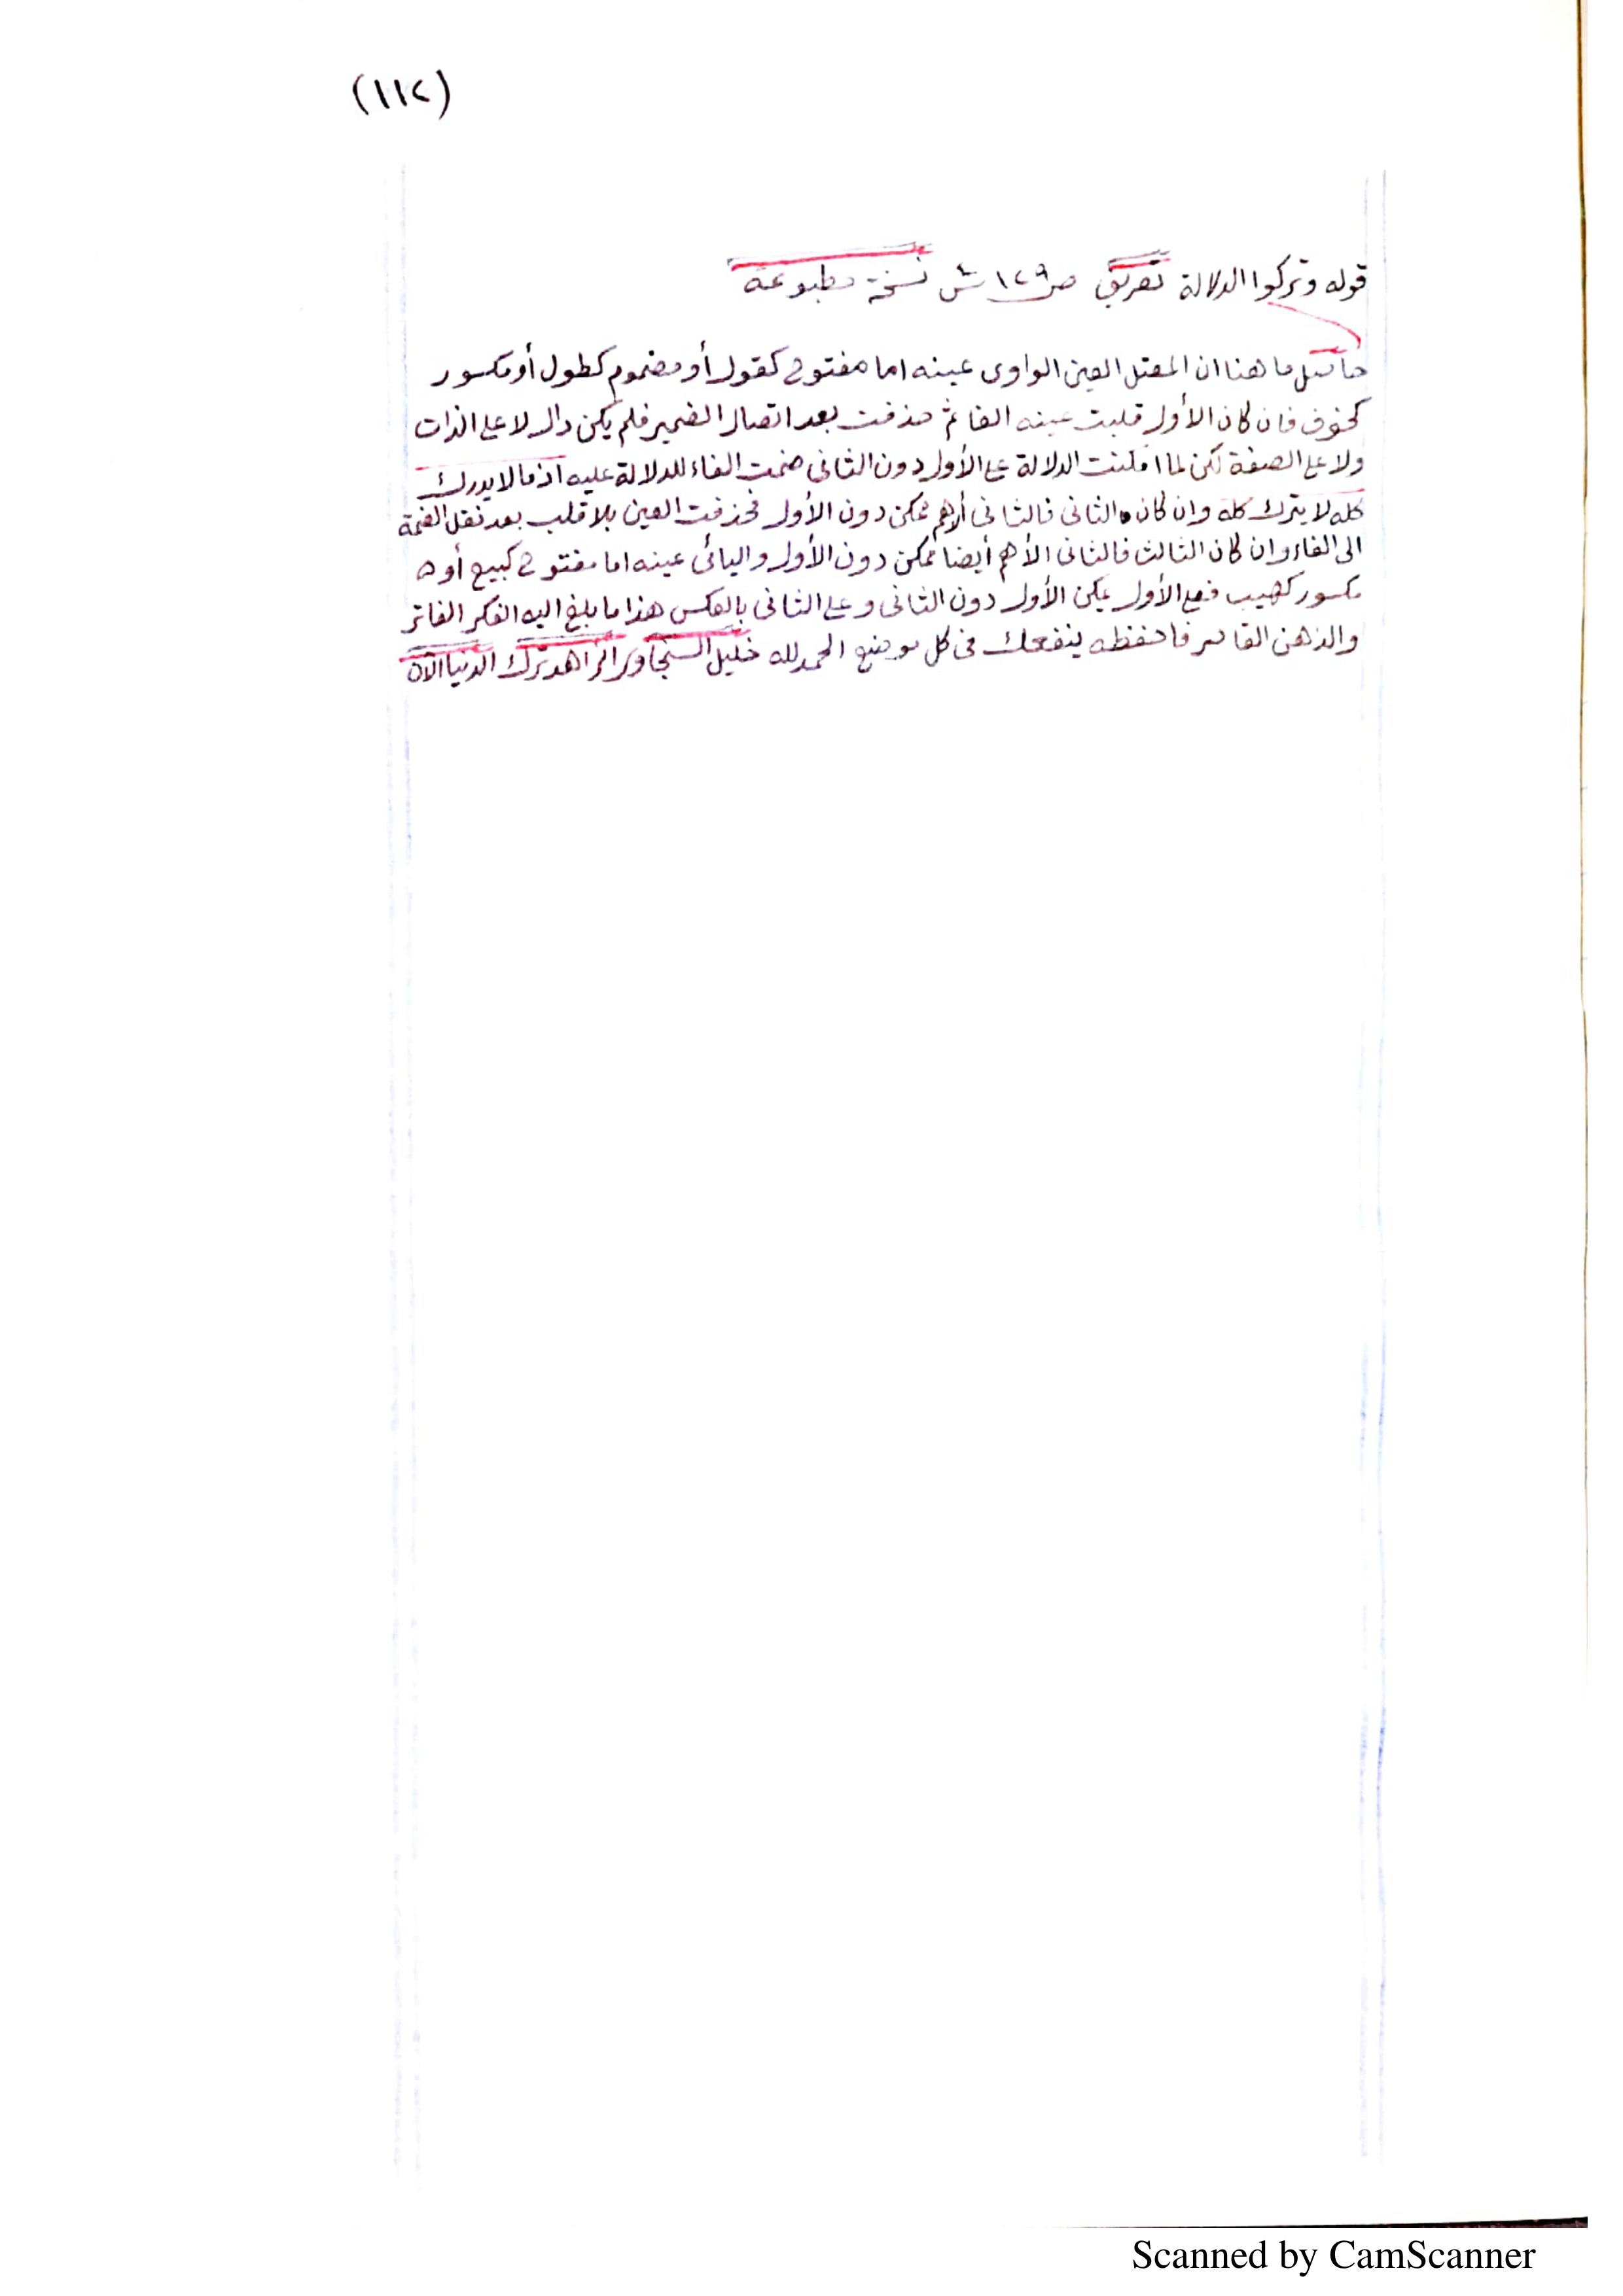 (١١٢)
قوله وتركوا الدلالة تفريق ص ١٢٩ س نسخة مطبوعة
حاصل ما هنا ان المعتل العين الواوى عينه اما مفتوح كقول أو مضموم كطول أو مكسور
كخوف فان كان الأول قلبت عينه الفا ثم حذفت بعد اتصال الضمير فلم يكن دال لا على الذات
ولا على الصفة لكن لما امكنت الدلالة على الأول دون الثانى ضمت الفاء للدلالة عليه اذ ما لا يدرك
كله لا يترك كله وان كان الثانى فالثانى أهم ممكن دون الأول فحذفت العين بلا قلب بعد نقل الضمة
الى الفاء وان كان الثالث فالثانى الأهم أيضا ممكن دون الأول واليائى عينه اما مفتوح كبيع أو ه
مكسور كهيب فعلى الأول يمكن الأول دون الثانى وعلى الثانى بالعكس هذا ما بلغ اليه الفكر الفاتر
والذهن القاصر فاحفظه ينفعك فى كل موضع الحمد لله خليل الزاهد ترك الدنيا الآن
Scanned by CamScanner